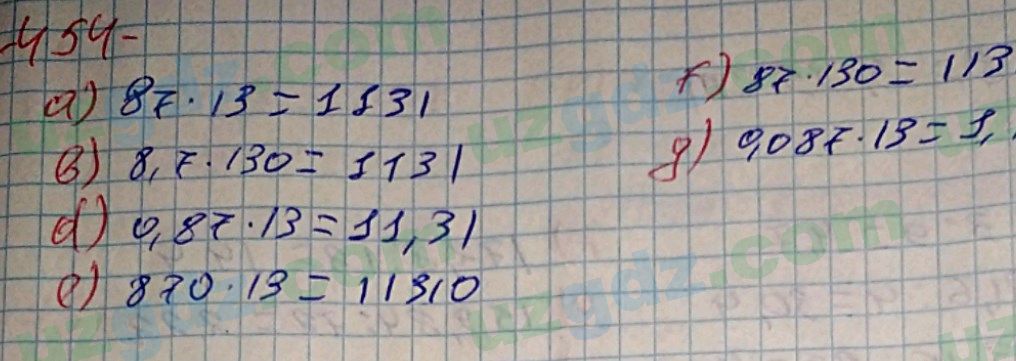 -454-
a) 87·13=1131
b) 8,7·130=1131
d) 0,87·13=11,31
e) 870·13=11310
f) 87·130=113
g) 0,087·13=1,
uzgdz.com